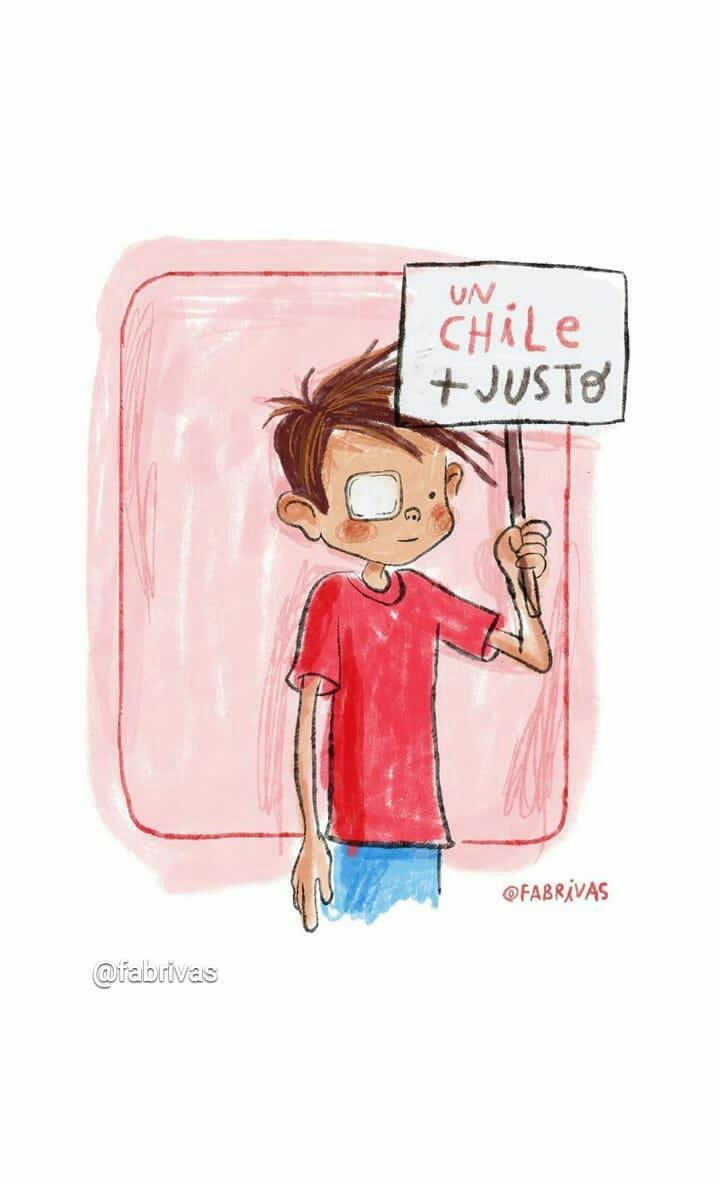 UN
CHiLe
+ JUSTO
@FABRiVAS
@fabrivas